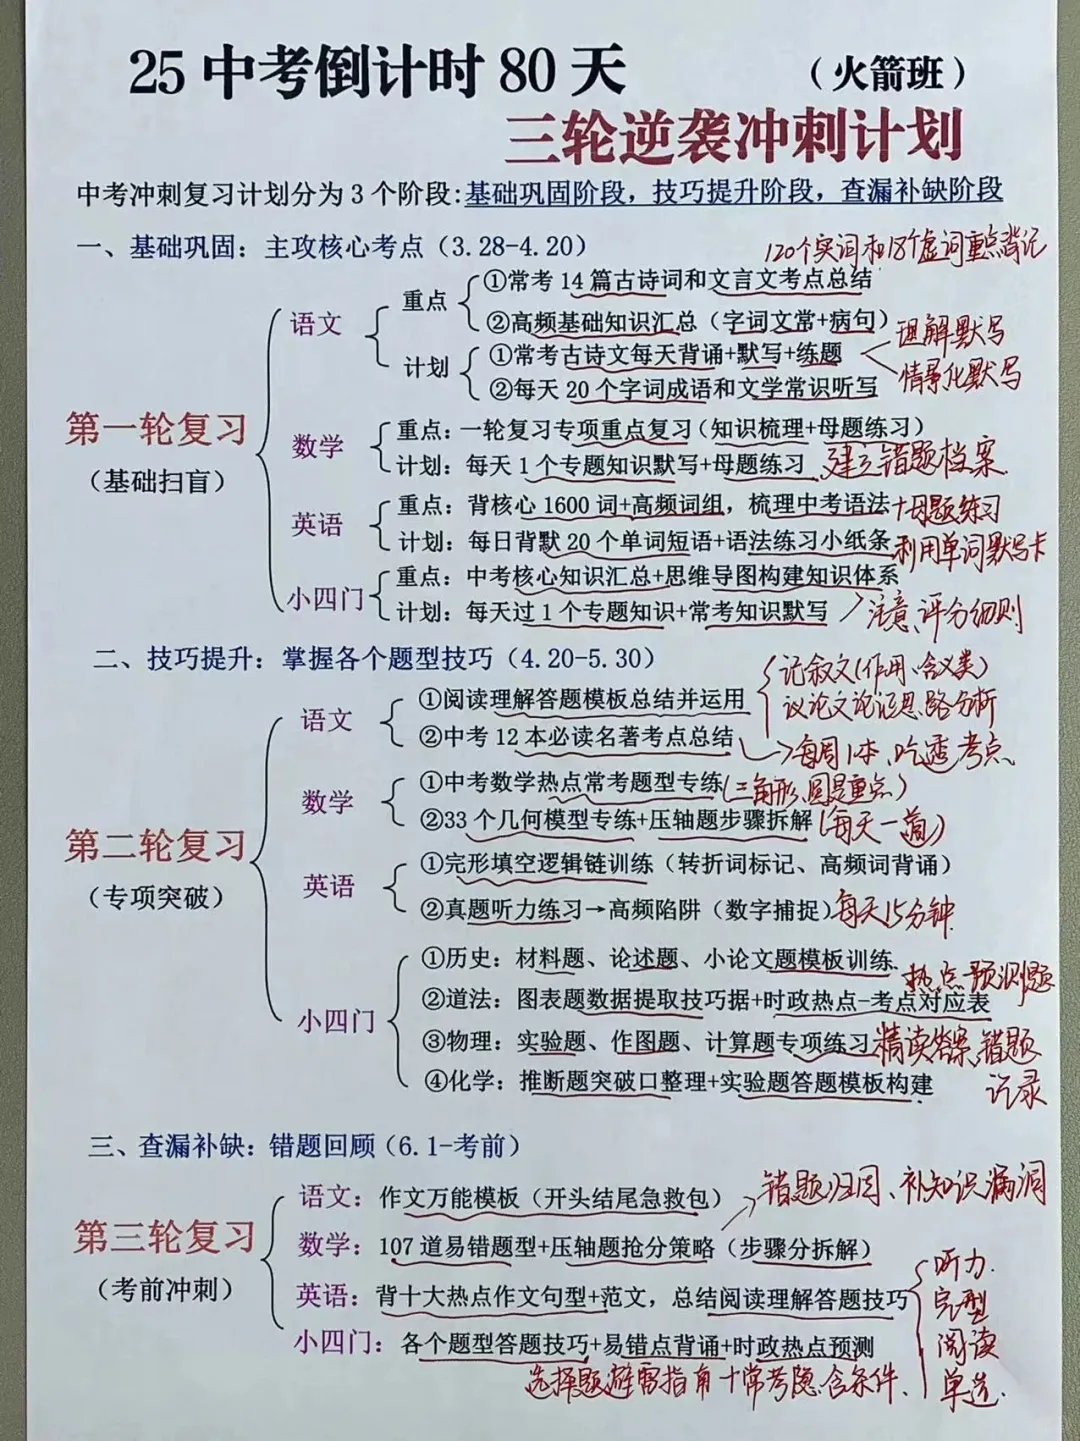 25中考倒计时80天 （火箭班）
三轮逆袭冲刺计划
中考冲刺复习计划分为3个阶段:基础巩固阶段，技巧提升阶段，查漏补缺阶段
一、基础巩固：主攻核心考点（3.28-4.20）
120个实词和18个虚词重点背记
第一轮复习
（基础扫盲）
语文
重点
①常考14篇古诗词和文言文考点总结
②高频基础知识汇总（字词文常+病句）
计划
①常考古诗文每天背诵+默写+练题
理解默写
情景化默写
②每天20个字词成语和文学常识听写
数学
重点：一轮复习专项重点复习（知识梳理+母题练习）
计划：每天1个专题知识默写+母题练习 建立错题档案
英语
重点：背核心1600词+高频词组，梳理中考语法+母题练习
计划：每日背默20个单词短语+语法练习小纸条 利用单词默写卡
小四门
重点：中考核心知识汇总+思维导图构建知识体系
计划：每天过1个专题知识+常考知识默写 注意、评分细则
二、技巧提升：掌握各个题型技巧（4.20-5.30）
第二轮复习
（专项突破）
语文
①阅读理解答题模板总结并运用
记叙文(作用、含义类)
议论文论证思路分析
②中考12本必读名著考点总结
每周1本、吃透考点、
数学
①中考数学热点常考题型专练(三角形、圆是重点)
②33个几何模型专练+压轴题步骤拆解(每天一道)
英语
①完形填空逻辑链训练（转折词标记、高频词背诵）
②真题听力练习→高频陷阱（数字捕捉）每天15分钟
小四门
①历史：材料题、论述题、小论文题模板训练
热点预测题
②道法：图表题数据提取技巧据+时政热点-考点对应表
③物理：实验题、作图题、计算题专项练习 精读答案、错题
记录
④化学：推断题突破口整理+实验题答题模板构建
三、查漏补缺：错题回顾（6.1-考前）
第三轮复习
（考前冲刺）
语文：作文万能模板（开头结尾急救包）
错题归因、补知识漏洞
数学：107道易错题型+压轴题抢分策略（步骤分拆解）
英语：背十大热点作文句型+范文，总结阅读理解答题技巧
听力.
完型
阅读
单选.
小四门：各个题型答题技巧+易错点背诵+时政热点预测
选择题避雷指南+常考隐含条件、